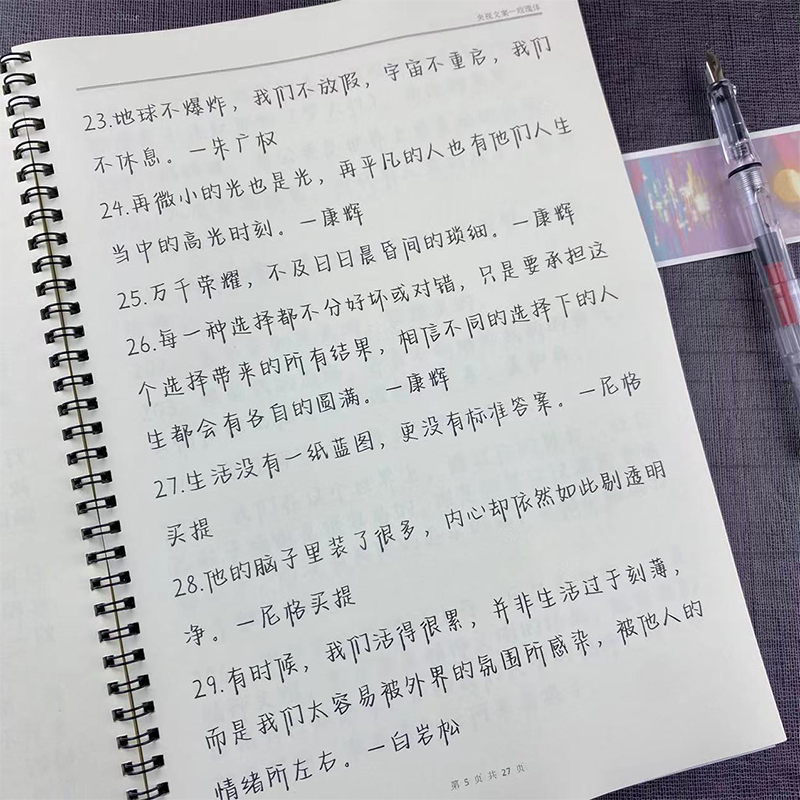 央视文案一玫瑰体
23.地球不爆炸，我们不放假，宇宙不重启，我们
不休息。一朱广权
24.再微小的光也是光，再平凡的人也有他们人生
当中的高光时刻。一康辉
25.万千荣耀，不及日日晨昏间的琐细。一康辉
26.每一种选择都不分好坏或对错，只是要承担这
个选择带来的所有结果，相信不同的选择下的人
生都会有各自的圆满。一康辉
27.生活没有一纸蓝图，更没有标准答案。一尼格
买提
28.他的脑子里装了很多，内心却依然如此剔透明
净。一尼格买提
29.有时候，我们活得很累，并非生活过于刻薄，
而是我们太容易被外界的氛围所感染，被他人的
情绪所左右。一白岩松
第 5 页 共 27 页